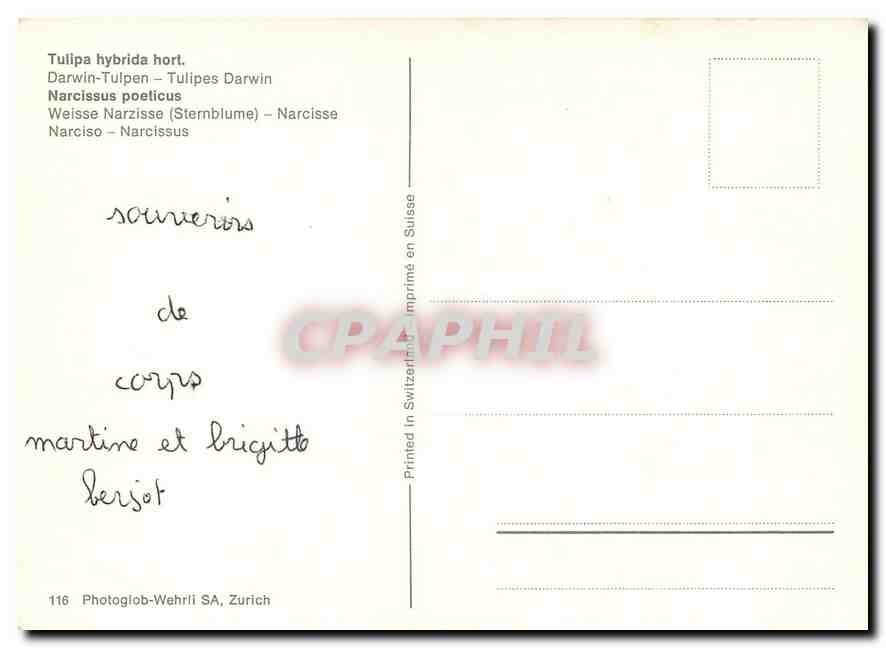 Tulipa hybrida hort.
Darwin-Tulpen – Tulipes Darwin
Narcissus poeticus
Weisse Narzisse (Sternblume) – Narcisse
Narciso – Narcissus
souvenirs
de
corps
martine et brigitte
berjot
116 Photoglob-Wehrli SA, Zurich
Printed in Switzerland – Imprimé en Suisse
CPAPHIL